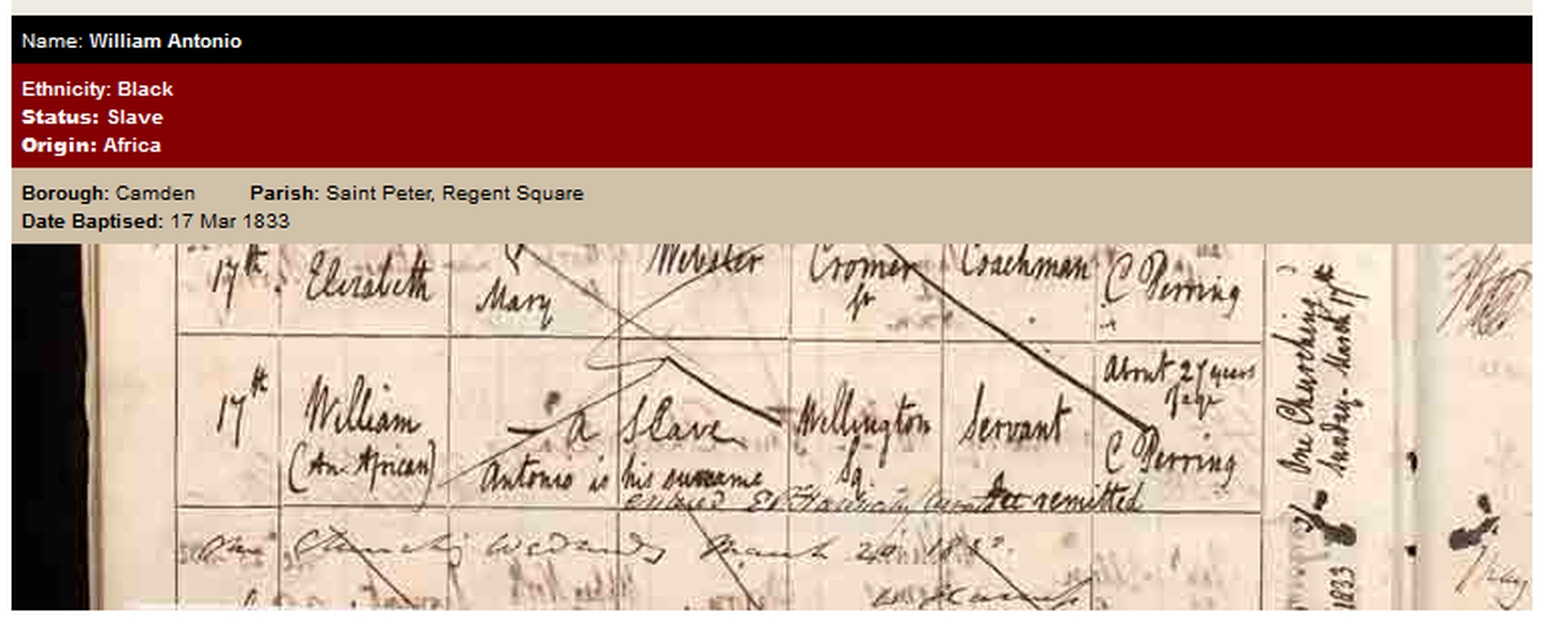 Name: William Antonio
Ethnicity: Black
Status: Slave
Origin: Africa
Borough: Camden Parish: Saint Peter, Regent Square
Date Baptised: 17 Mar 1833
17th Elizabeth Mary Webster Cromer Coachman C Perring
17th William (An African) — a Slave Wellington Sq. Servant About 27 years of age C Perring
Antonio is his surname
Fee remitted
March
One Churching
Sunday - March 17th
1833